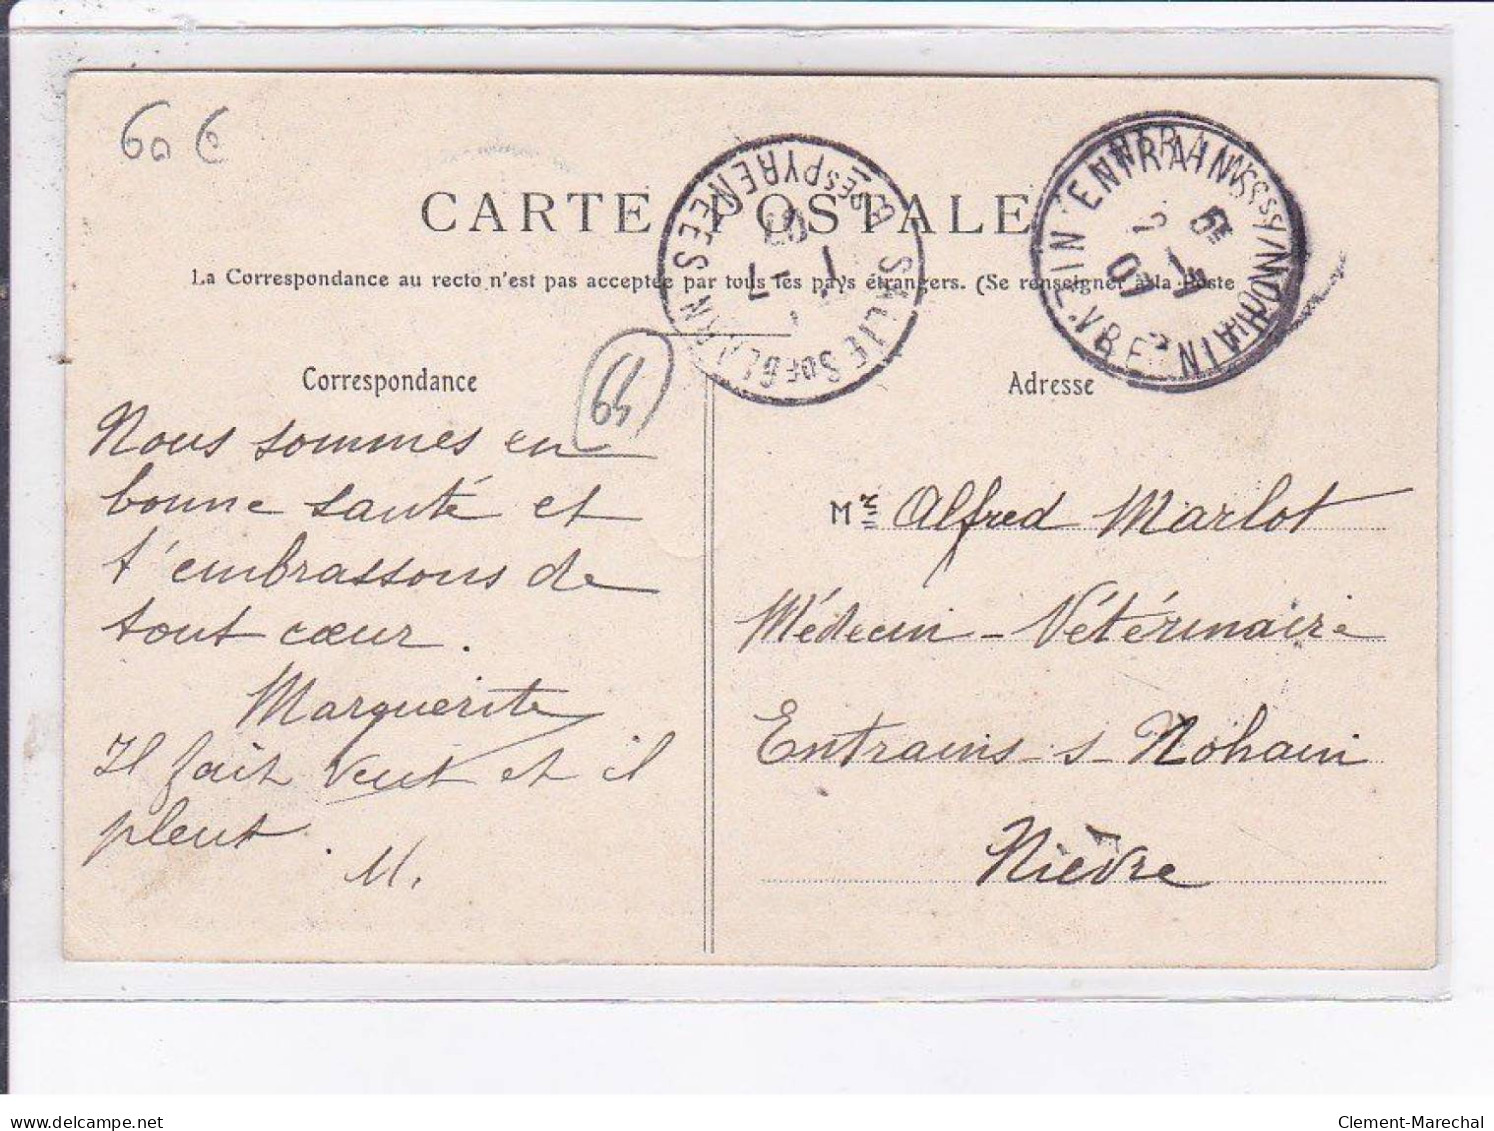 60 €
CARTE POSTALE
La Correspondance au recto n'est pas acceptée par tous les pays étrangers. (Se renseigner à la Poste
SALIES DE BEARN
BSES PYRENEES
1 - 1
07
ENTRAINS S NOHAIN
NIEVRE
6E
2 - 1
07
Correspondance
59
Adresse
Nous sommes en
bonne santé et
t'embrassons de
tout cœur.
Marguerite
Il fait vent et il
pleut.
M.
Mr Alfred Marlot
Médecin - Vétérinaire
Entrains - s - Nohain
Nièvre
delcampe.net
Clement-Marechal